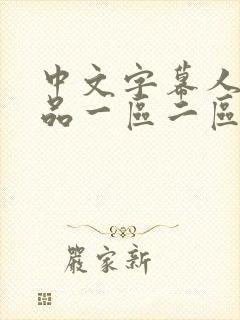 中文字幕人
品一區二區
嚴家新